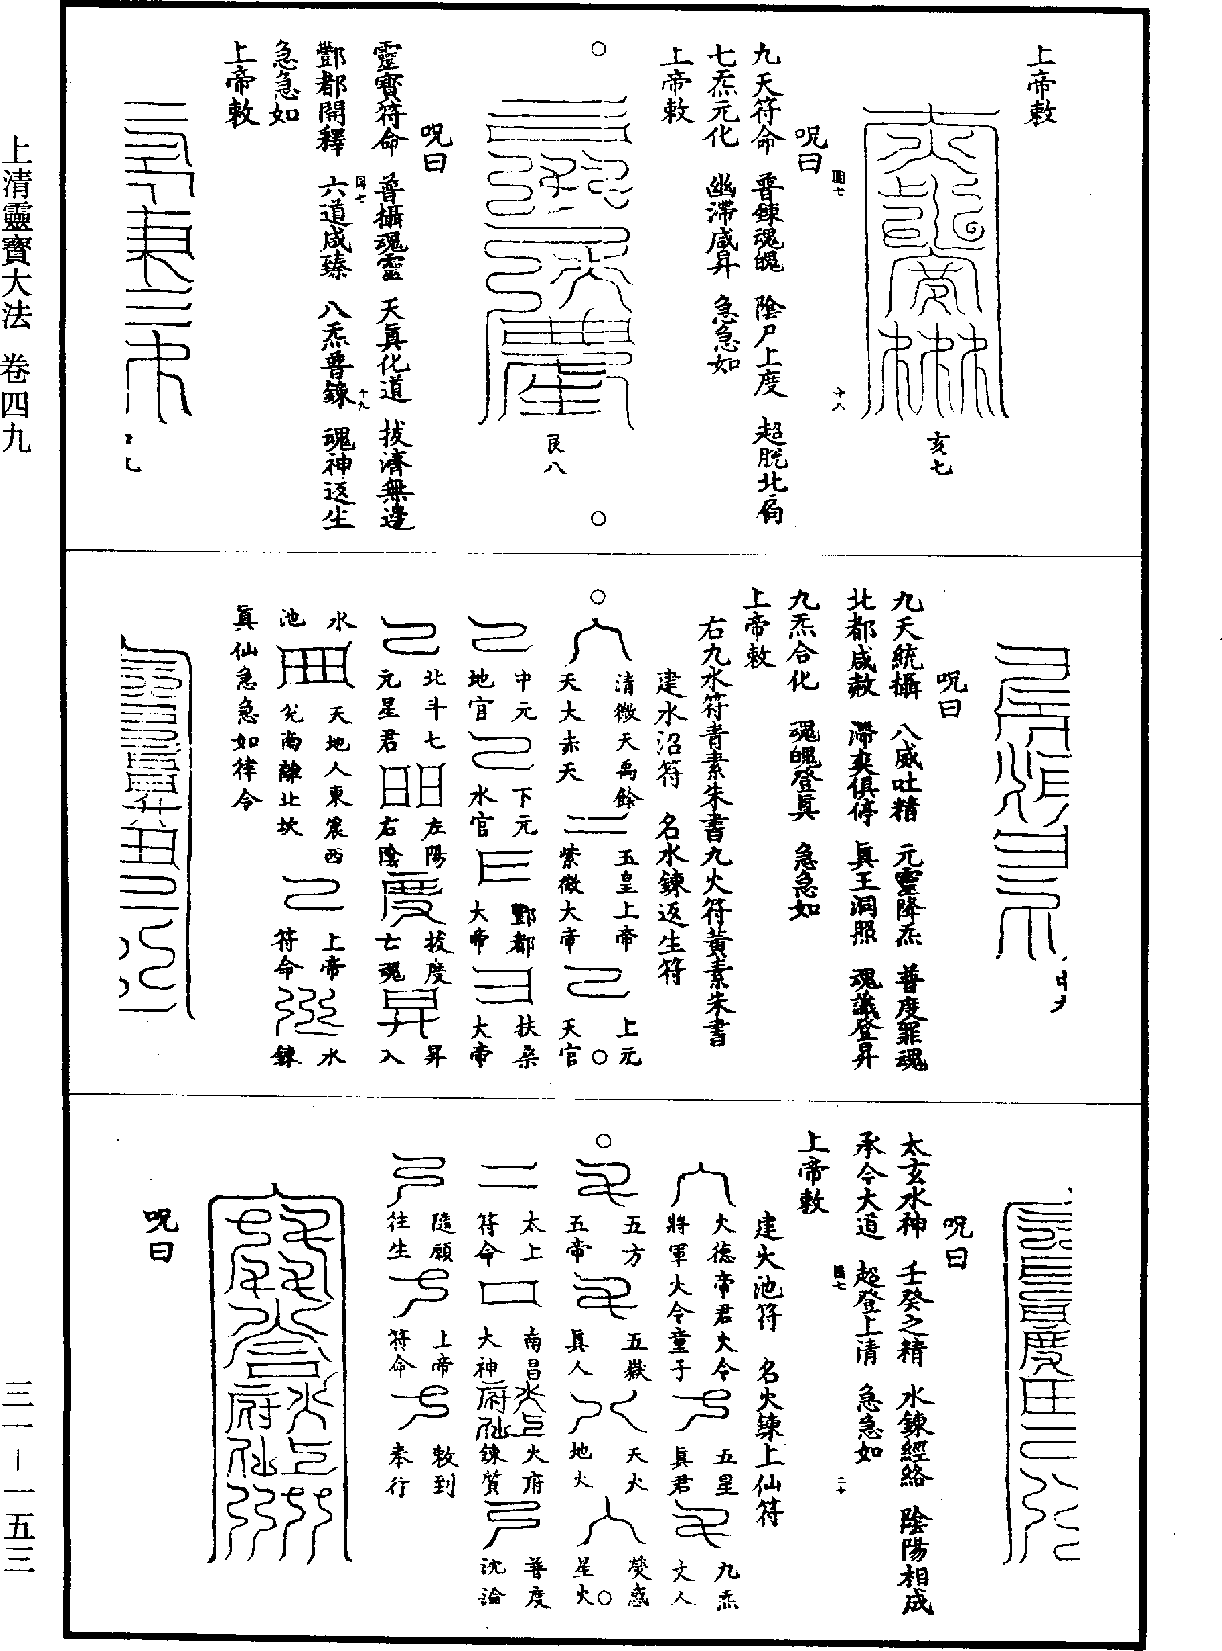 上帝敕
亥七
呪曰
九天符命　普鍊魂魄　陰尸上度　超脫北
七炁元化　幽滯咸昇　急急如
上帝敕
艮八
呪曰
靈寶符命　普攝魂靈　天真化道　拔濟無邊
酆都開釋　六道咸臻　八炁普鍊　魂神返生
急急如
上帝敕
中九
呪曰
九天統攝　八威吐精　元靈降炁　普度罪魂
北都咸赦　滯爽俱停　真王洞照　魂識登昇
九炁合化　魂魄登真　急急如
上帝敕
右九水符青素朱書九火符黃素朱書
建水沼符　名水鍊返生符
清微天禹餘
天大赤天
五皇上帝
紫微大帝
上元
天官
中元
地官
下元
水官
酆都
大帝
扶桑
大帝
北斗七
元星君
左陽
右陰
拔度
亡魂
昇
入
水
池
天地人東震西
兌南離北坎
上帝
符命
水
鍊
真仙急急如律令
呪曰
太玄水神　壬癸之精　水鍊經絡　陰陽相成
承令大道　超登上清　急急如
上帝敕
建火池符　名火鍊上仙符
火德帝君火令
將軍火令童子
五星
真君
九炁
丈人
五方
五帝
五嶽
真人
天火
地火
熒惑
星火
太上
符命
南昌
大神
火府
鍊質
普度
沈淪
隨願
往生
上帝
符命
敕到
奉行
呪曰
上清靈寶大法　卷四九
三一－一五三